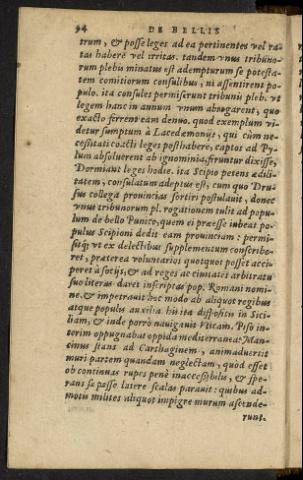 94 DE BELLIS
trum, & posse leges ad ea pertinentes vel ra-
tas habere vel irritas. tandem vnus tribuno-
rum plebis minatus est adempturum se potesta-
tem comitiorum consulibus, ni assentirent po-
pulo. ita consules permiserunt tribunii pleb. vt
legem hanc in annum vnum abrogarent, quo
exacto ferrent eam denuo. quod exemplum vi-
detur sumptum à Lacedemonijs, qui cùm ne-
cessitati coacti leges posthabere, captos ad Py-
lum absoluerent ab ignominia, fruntur dixisse,
Dormiant leges hodie. ita Scipio petens ædili-
tatem, consulatum adeptus est, cum quo Dru-
sus collega prouincias sortiri postulauit, donec
vnus tribunorum pl. rogationem tulit ad popu-
lum de bello Punico, quem ei præesse iubeat po-
pulus Scipioni dedit eam prouinciam: permi-
sitq́; vt ex delectibus supplementum conscribe-
ret, præterea voluntarios quotquot posset acci-
peret à socijs, & ad reges ac ciuitates arbitratu
suo literas daret inscriptas pop. Romani nomi-
ne. & impetrauit hoc modo ab aliquot regibus
atque populis auxilia. his ita dispositis in Sici-
liam, & inde porrò nauigauit Vticam. Piso in-
terim oppugnabat oppida mediterranea: Man-
cinus stans ad Carthaginem, animaduertit
muri partem quandam neglectam, quòd esset
ob continuas rupes penè inaccessibilis, & spe-
rans se posse latere scalas parauit: quibus ad-
motis milites aliquot impigre murum ascende-
runt.